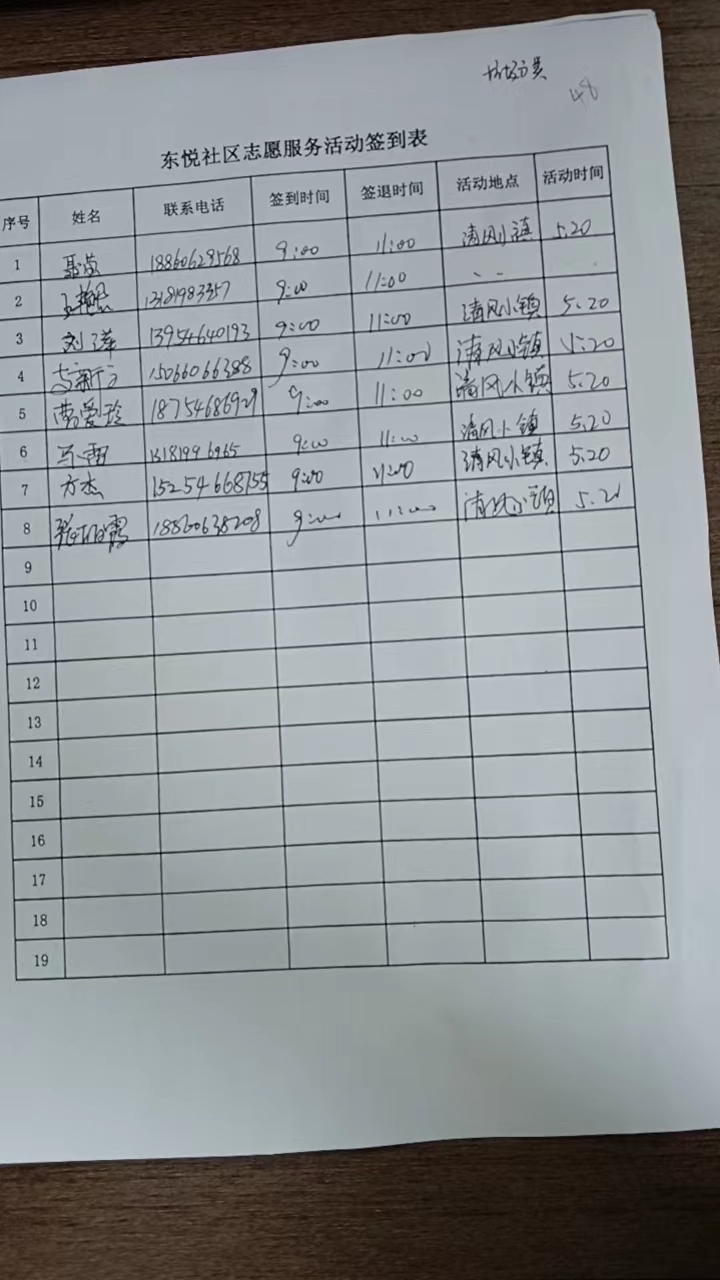 48
东悦社区志愿服务活动签到表
序号 姓名 联系电话 签到时间 签退时间 活动地点 活动时间
1 18860629568 9:00 11:00 清风小镇 5.20
2 13181983357 9:00 11:00
3 刘萍 13954640193 9:00 11:00 清风小镇 5.20
4 15066066388 9:00 11:00 清风小镇 5.20
5 曹爱玲 18754686929 9:00 11:00 清风小镇 5.20
6 9:00 11:00 清风小镇 5.20
7 方杰 15254668755 9:00 11:00 清风小镇 5.20
8 18860638208 9:00 11:00 清风小镇
9
10
11
12
13
14
15
16
17
18
19